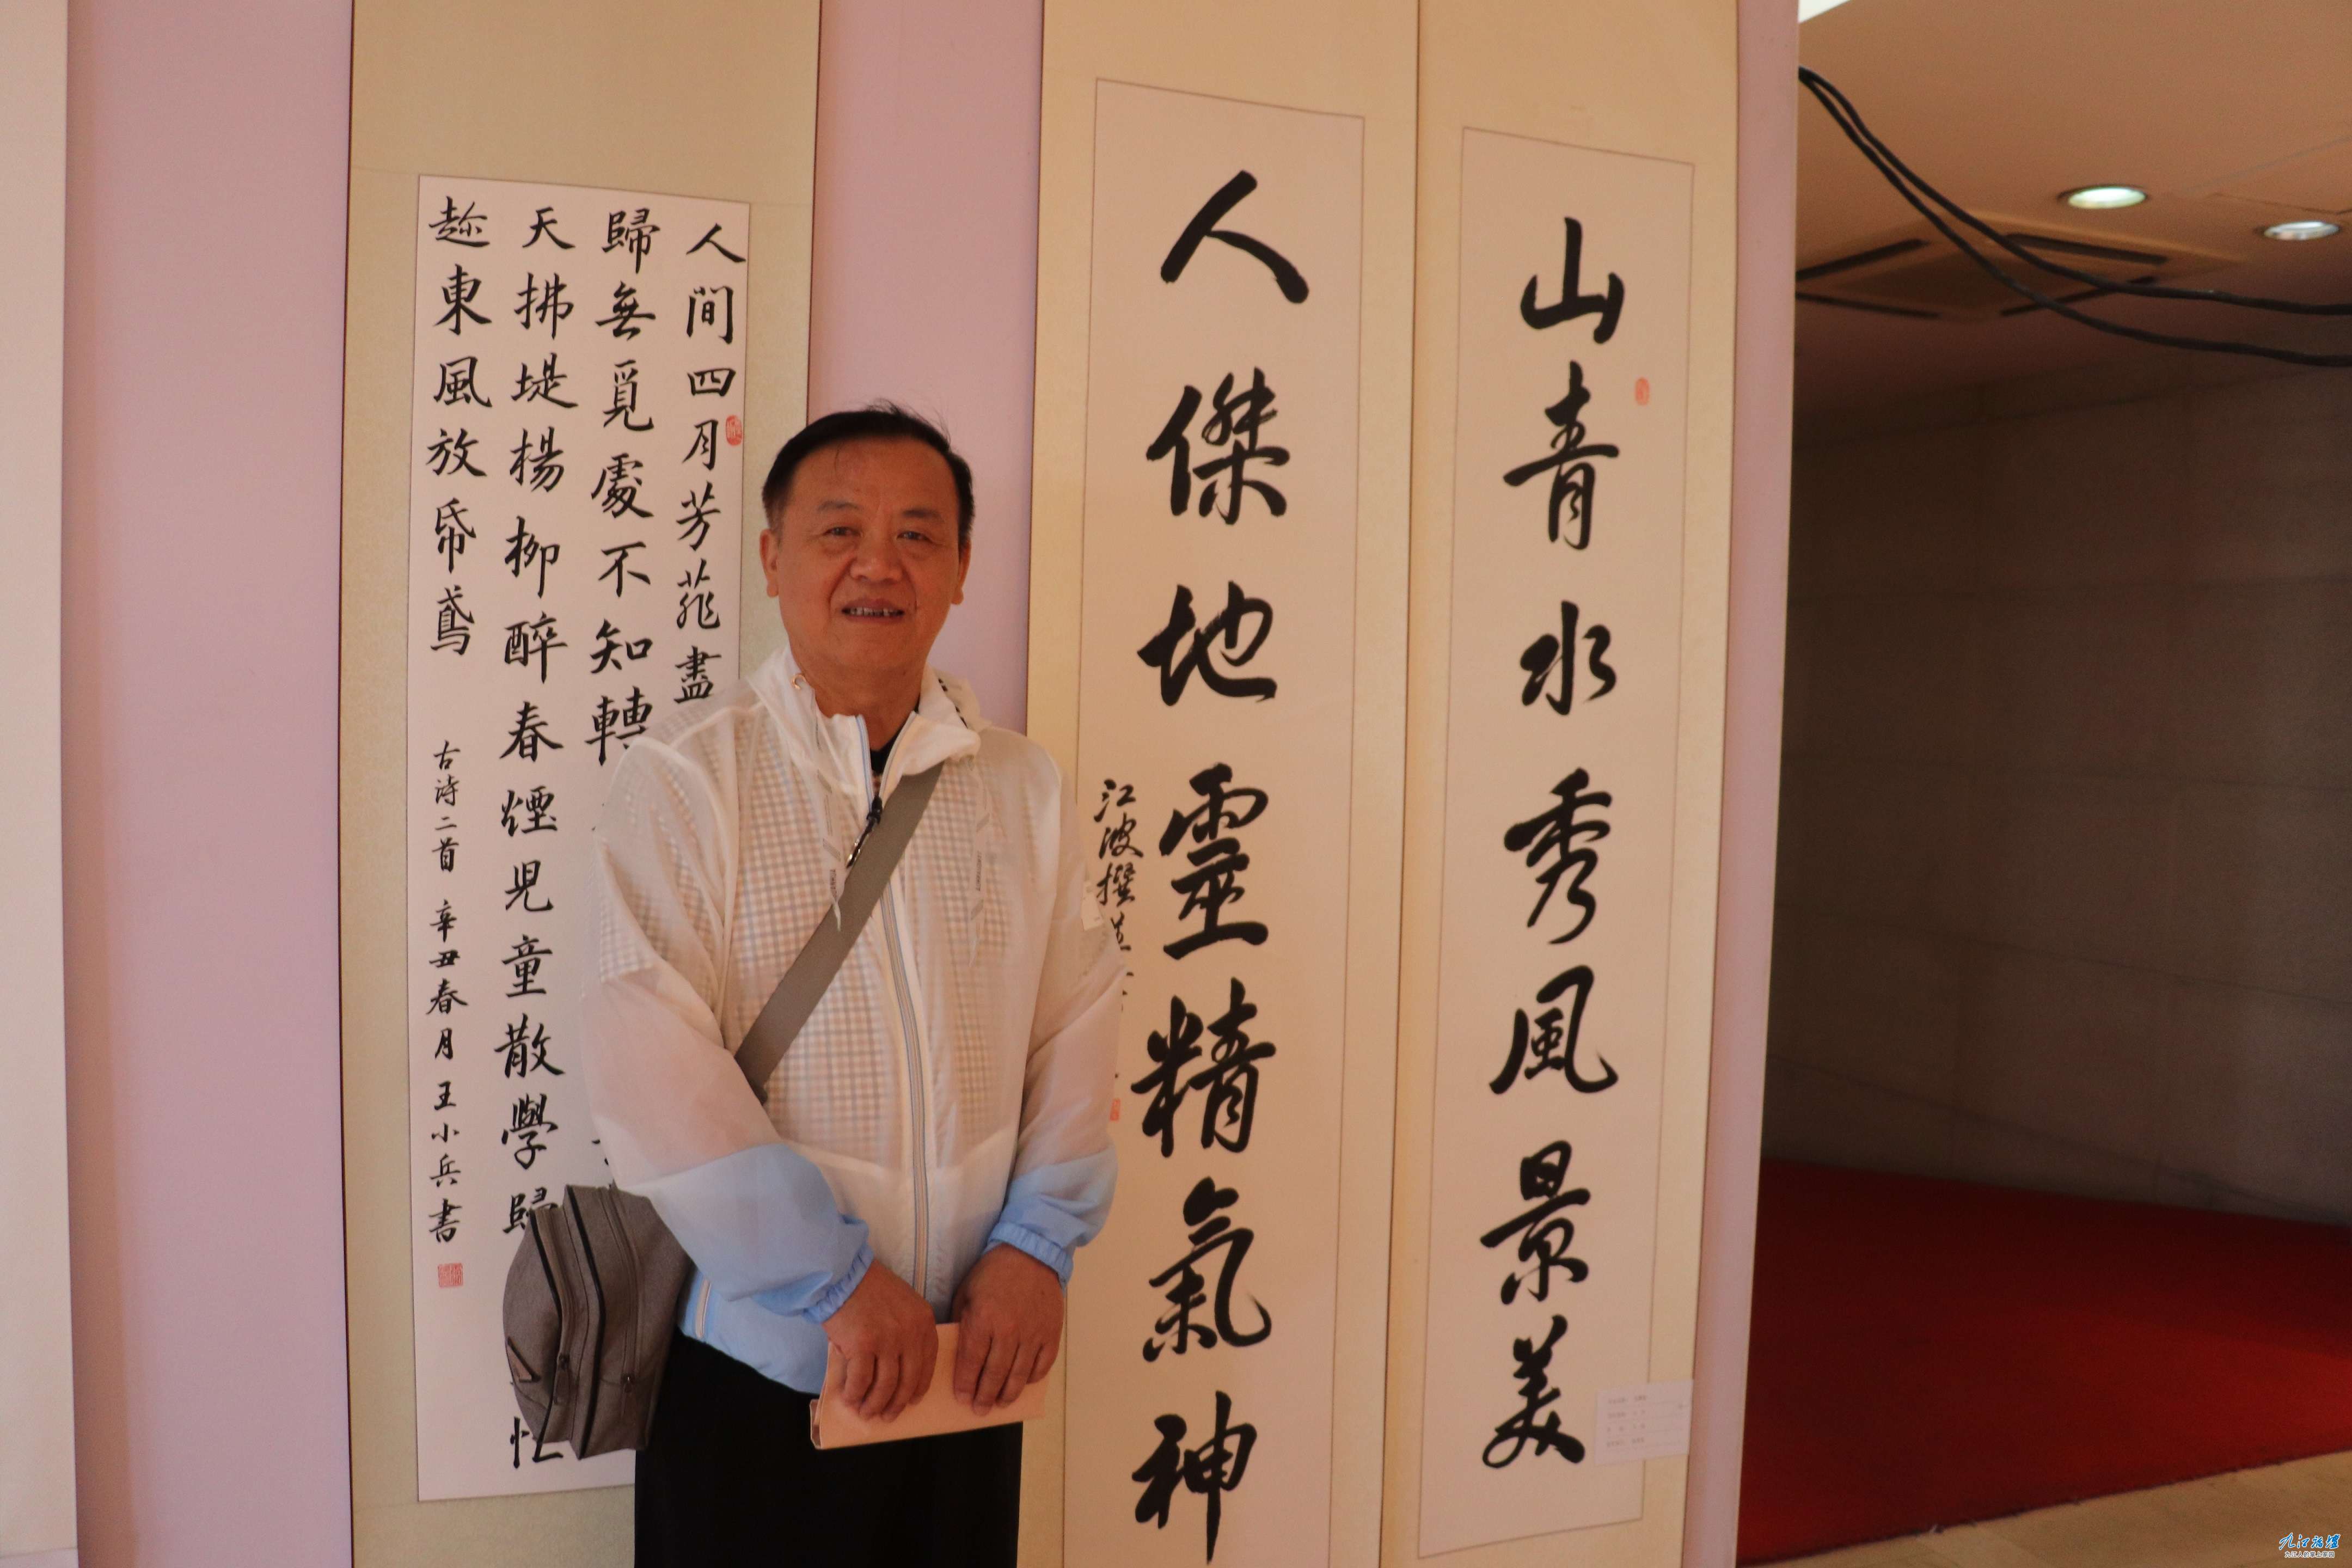 山青水秀風景美
人傑地靈精氣神
江波撰並
人間四月芳菲盡
歸無覓處不知轉
天拂堤楊柳醉春煙兒童散學歸忙
趂東風放帋鳶
古詩二首 辛丑春月 王小兵書
九江论坛
九江人的掌上家园